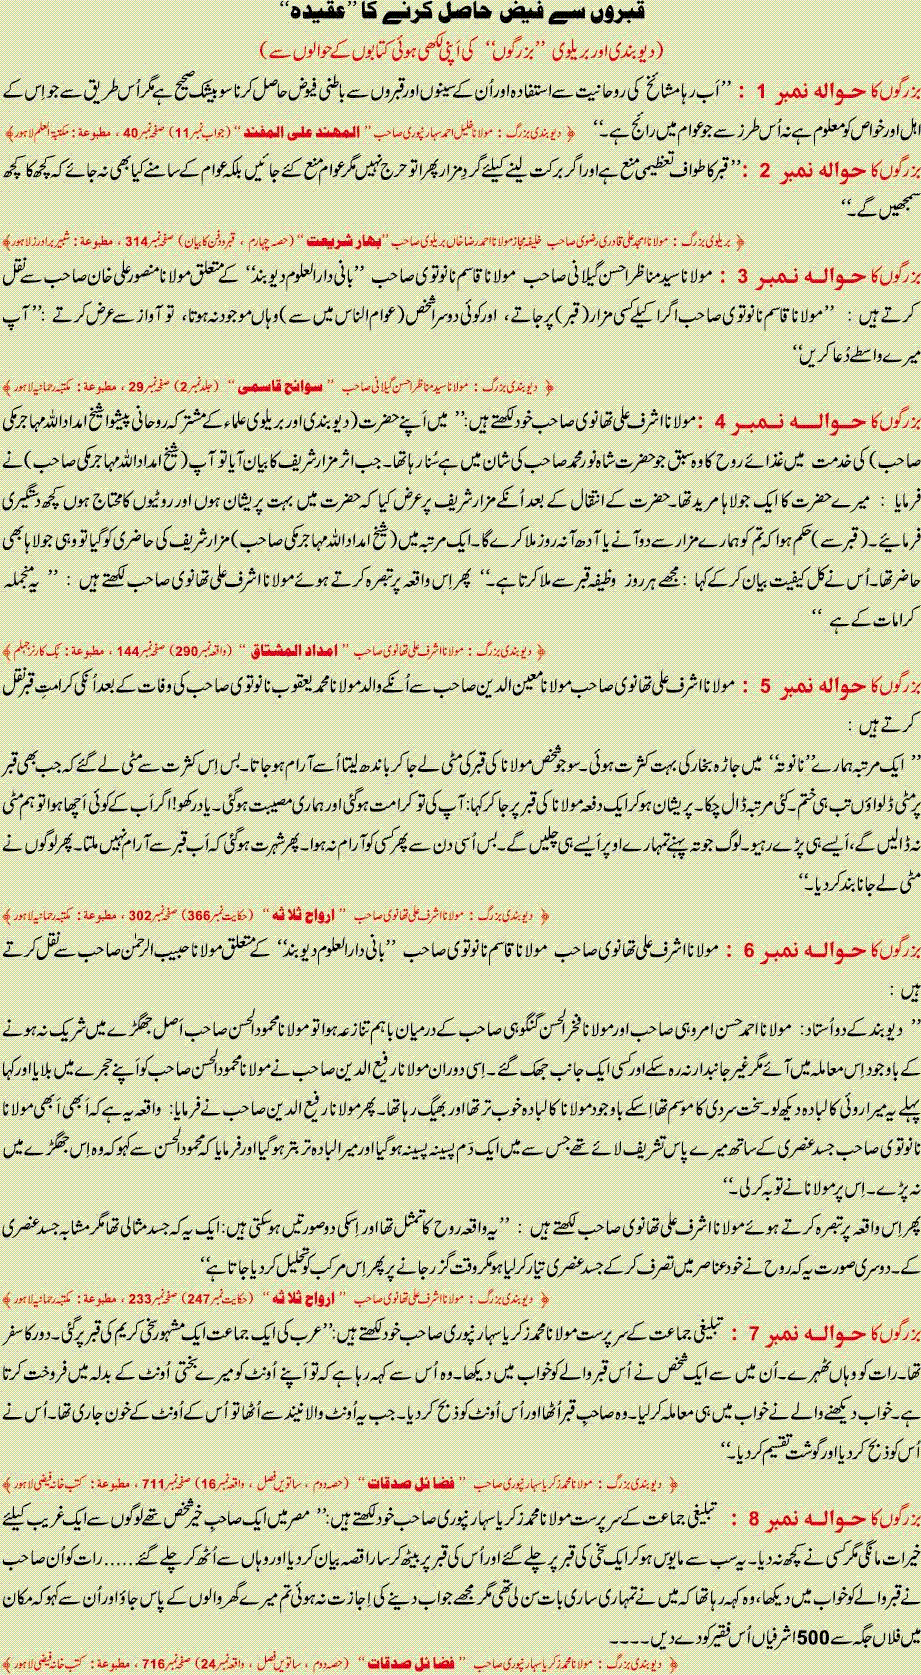 قبروں سے فیض حاصل کرنے کا ’’عقیدہ‘‘
(دیوبندی اور بریلوی ’’بزرگوں‘‘ کی اَپنی لکھی ہوئی کتابوں کے حوالوں سے)
بزرگوں کا حوالہ نمبر 1 : ’’اَب رہا مشائخ کی روحانیت سے استفادہ اور اُن کے سینوں اور قبروں سے باطنی فیوض حاصل کرنا سو بیشک صحیح ہے مگر اُس طریق سے جو اِس کے
اہل اور خواص کو معلوم ہے نہ اُس طرز سے جو عوام میں رائج ہے۔‘‘ ﴿ دیوبندی بزرگ : مولانا خلیل احمد سہارنپوری صاحب ’’المھند علی المفند‘‘ (جواب نمبر11) صفحہ نمبر 40 ، مطبوعۃ : مکتبۃ العلم لاہور ﴾
بزرگوں کا حوالہ نمبر 2 : ’’قبر کا طواف تعظیمی منع ہے اور اگر برکت لینے کیلئے گردِ مزار پھرا تو حرج نہیں مگر عوام منع کئے جائیں بلکہ عوام کے سامنے کیا بھی نہ جائے کہ کچھ کا کچھ
سمجھیں گے۔‘‘
﴿ بریلوی بزرگ : مولانا امجد علی قادری رضوی صاحب خلیفہ مجاز مولانا احمد رضا خاں بریلوی صاحب ’’بھار شریعت‘‘ (حصہ چہارم ، قبر و دفن کا بیان) صفحہ نمبر 314 ، مطبوعۃ : شبیر برادرز لاہور ﴾
بزرگوں کا حوالہ نمبر 3 : مولانا سید مناظر احسن گیلانی صاحب مولانا قاسم نانوتوی صاحب ’’بانی دارالعلوم دیوبند‘‘ کے متعلق مولانا منصور علی خان صاحب سے نقل
کرتے ہیں : ’’مولانا قاسم نانوتوی صاحب اگر اکیلے کسی مزار (قبر) پر جاتے ، اور کوئی دوسرا شخص (عوام الناس میں سے) وہاں موجود نہ ہوتا ، تو آواز سے عرض کرتے :’’آپ
میرے واسطے دُعا کریں‘‘
﴿ دیوبندی بزرگ : مولانا سید مناظر احسن گیلانی صاحب ’’سوانح قاسمی‘‘ (جلد نمبر 2) صفحہ نمبر 29 ، مطبوعۃ : مکتبہ رحمانیہ لاہور ﴾
بزرگوں کا حوالہ نمبر 4 :مولانا اشرف علی تھانوی صاحب خود لکھتے ہیں:’’ میں اَپنے حضرت (دیوبندی اور بریلوی علماء کے مشترکہ روحانی پیشوا شیخ امداد اللہ مہاجر مکی
صاحب) کی خدمت میں غذائے روح کا وہ سبق جو حضرت شاہ نور محمد صاحب کی شان میں ہے سُنا رہا تھا۔ جب اثر مزار شریف کا بیان آیا تو آپ (شیخ امداد اللہ مہاجر مکی صاحب) نے
فرمایا : میرے حضرت کا ایک جولاہا مرید تھا۔ حضرت کے انتقال کے بعد اُنکے مزار شریف پر عرض کیا کہ حضرت میں بہت پریشان ہوں اور روٹیوں کا محتاج ہوں کچھ دستگیری
فرمائیے۔ (قبر سے) حکم ہوا کہ تم کو ہمارے مزار سے دو آنے یا آدھ آنہ روز ملا کرے گا۔ ایک مرتبہ میں (شیخ امداد اللہ مہاجر مکی صاحب) مزار شریف کی حاضری کو گیا تو وہی جولاہا بھی
حاضر تھا۔ اُس نے کل کیفیت بیان کر کے کہا : مجھے ہر روز وظیفہ قبر سے ملا کرتا ہے۔‘‘ پھر اِس واقعہ پر تبصرہ کرتے ہوئے مولانا اشرف علی تھانوی صاحب لکھتے ہیں : ’’ یہ منجملہ
کرامات کے ہے ‘‘
﴿ دیوبندی بزرگ : مولانا اشرف علی تھانوی صاحب ’’امداد المشتاق‘‘ (واقعہ نمبر 290) صفحہ نمبر 144 ، مطبوعۃ : بک کارنر جہلم ﴾
بزرگوں کا حوالہ نمبر 5 : مولانا اشرف علی تھانوی صاحب مولانا معین الدین صاحب سے اُنکے والد مولانا محمد یعقوب نانوتوی صاحب کی وفات کے بعد اُنکی کرامتِ قبر نقل
کرتے ہیں :
’’ ایک مرتبہ ہمارے ’’نانوتہ‘‘ میں جاڑہ بخار کی بہت کثرت ہوئی۔ سو جو شخص مولانا کی قبر کی مٹی لے جا کر باندھ لیتا اُسے آرام ہو جاتا۔ بس اِس کثرت سے مٹی لے گئے کہ جب بھی قبر
پر مٹی ڈلواؤں تب ہی ختم۔ کئی مرتبہ ڈال چکا۔ پریشان ہو کر ایک دفعہ مولانا کی قبر پر جا کر کہا: آپ کی تو کرامت ہوگئی اور ہماری مصیبت ہوگئی۔ یاد رکھو! اگر اَب کے کوئی اچھا ہوا تو ہم مٹی
نہ ڈالیں گے ، اَیسے ہی پڑے رہیو۔ لوگ جوتہ پہنے تمہارے اوپر اَیسے ہی چلیں گے۔ بس اُسی دن سے پھر کسی کو آرام نہ ہوا۔ پھر شہرت ہوگئی کہ اَب قبر سے آرام نہیں ملتا۔ پھر لوگوں نے
مٹی لے جانا بند کر دیا۔‘‘
﴿ دیوبندی بزرگ : مولانا اشرف علی تھانوی صاحب ’’ارواح ثلاثہ‘‘ (حکایت نمبر 366) صفحہ نمبر 302 ، مطبوعۃ : مکتبہ رحمانیہ لاہور ﴾
بزرگوں کا حوالہ نمبر 6 : مولانا اشرف علی تھانوی صاحب مولانا قاسم نانوتوی صاحب ’’بانی دارالعلوم دیوبند‘‘ کے متعلق مولانا حبیب الرحمٰن صاحب سے نقل کرتے
ہیں :
’’ دیوبند کے دو اُستاد: مولانا احمد حسن امروہی صاحب اور مولانا فخر الحسن گنگوہی صاحب کے درمیان باہم تنازعہ ہوا تو مولانا محمود الحسن صاحب اَصل جھگڑے میں شریک نہ ہونے
کے باوجود اِس معاملہ میں آئے مگر غیر جانبدار نہ رہ سکے اور کسی ایک جانب جھک گئے۔ اِسی دوران مولانا رفیع الدین صاحب نے مولانا محمود الحسن صاحب کو اَپنے حجرے میں بلایا اور کہا
پہلے یہ میرا روئی کا لبادہ دیکھ لو۔ سخت سردی کا موسم تھا اِسکے باوجود مولانا کا لبادہ خوب تر تھا اور بھیگ رہا تھا۔ پھر مولانا رفیع الدین صاحب نے فرمایا: واقعہ یہ ہے کہ اَبھی اَبھی مولانا
نانوتوی صاحب جسدِ عنصری کے ساتھ میرے پاس تشریف لائے تھے جس سے میں ایک دَم پسینہ پسینہ ہوگیا اور میرا لبادہ تر بتر ہوگیا اور فرمایا کہ محمود الحسن سے کہو کہ وہ اِس جھگڑے میں
نہ پڑے۔ اِس پر مولانا نے توبہ کر لی۔‘‘
پھر اِس واقعہ پر تبصرہ کرتے ہوئے مولانا اشرف علی تھانوی صاحب لکھتے ہیں : ’’یہ واقعہ روح کا تمثل تھا اور اِسکی دو صورتیں ہو سکتی ہیں: ایک یہ کہ جسد مثالی تھا مگر مشابہ جسد عنصری
کے۔ دوسری صورت یہ کہ روح نے خود عناصر میں تصرف کر کے جسد عنصری تیار کر لیا ہو مگر وقت گزر جانے پر پھر اِس مرکب کو تحلیل کر دیا جاتا ہے‘‘
﴿ دیوبندی بزرگ : مولانا اشرف علی تھانوی صاحب ’’ارواح ثلاثہ‘‘ (حکایت نمبر 247) صفحہ نمبر 233 ، مطبوعۃ : مکتبہ رحمانیہ لاہور ﴾
بزرگوں کا حوالہ نمبر 7 : تبلیغی جماعت کے سرپرست مولانا محمد زکریا سہارنپوری صاحب خود لکھتے ہیں:’’عرب کی ایک جماعت ایک مشہور سخی کریم کی قبر پر گئی۔ دور کا سفر
تھا۔ رات کو وہاں ٹھہرے۔ اُن میں سے ایک شخص نے اُس قبر والے کو خواب میں دیکھا۔ وہ اُس سے کہہ رہا ہے کہ تو اَپنے اُونٹ کو میرے بختی اُونٹ کے بدلہ میں فروخت کرتا
ہے۔ خواب دیکھنے والے نے خواب میں ہی معاملہ کر لیا۔ وہ صاحبِ قبر اُٹھا اور اُس اُونٹ کو ذبح کر دیا۔ جب یہ اُونٹ والا نیند سے اُٹھا تو اُس کے اُونٹ کے خون جاری تھا۔ اُس نے
اُس کو ذبح کر دیا اور گوشت تقسیم کر دیا۔‘‘
﴿ دیوبندی بزرگ : مولانا محمد زکریا سہارنپوری صاحب ’’فضائل صدقات‘‘ (حصہ دوم ، ساتویں فصل ، واقعہ نمبر 16) صفحہ نمبر 711 ، مطبوعۃ : کتب خانہ فیضی لاہور ﴾
بزرگوں کا حوالہ نمبر 8 : تبلیغی جماعت کے سرپرست مولانا محمد زکریا سہارنپوری صاحب خود لکھتے ہیں:’’ مصر میں ایک صاحبِ خیر شخص تھے لوگوں سے ایک غریب کیلئے
خیرات مانگی مگر کسی نے کچھ نہ دیا۔ یہ سب سے مایوس ہو کر ایک سخی کی قبر پر چلے گئے اور اُس کی قبر پر بیٹھ کر سارا قصہ بیان کر دیا اور وہاں سے اُٹھ کر چلے گئے......رات کو اُن صاحب
نے قبر والے کو خواب میں دیکھا ، وہ کہہ رہا تھا کہ میں نے تمہاری ساری بات سن لی تھی مگر مجھے جواب دینے کی اِجازت نہ ہوئی تم میرے گھر والوں کے پاس جاؤ اور اُن سے کہو کہ مکان
میں فلاں جگہ سے 500 اشرفیاں اُس فقیر کو دے دیں۔۔۔۔
﴿ دیوبندی بزرگ : مولانا محمد زکریا سہارنپوری صاحب ’’فضائل صدقات‘‘ (حصہ دوم ، ساتویں فصل ، واقعہ نمبر 24) صفحہ نمبر 716 ، مطبوعۃ : کتب خانہ فیضی لاہور ﴾